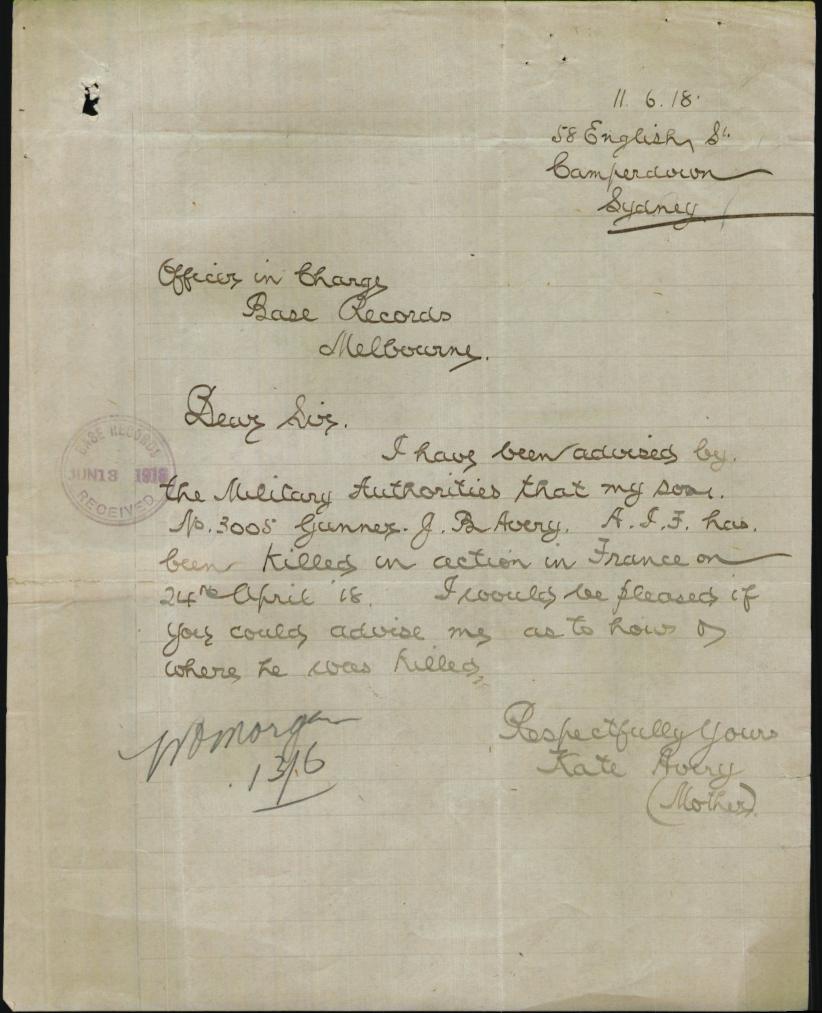 11. 6. 18.
58 English St
Camperdown
Sydney
Officer in Charge
Base Records
Melbourne.
Dear Sir.
I have been advised by
the Military Authorities that my son.
No. 3005 Gunner. J. B Avery. A. I. F. has.
been killed in action in France on
24th April '18. I would be pleased if
you could advise me as to how &
where he was killed.
BASE RECORDS
JUN 13 1918
RECEIVED
Respectfully Yours
Kate Avery
(Mother)
Morgan
13/6